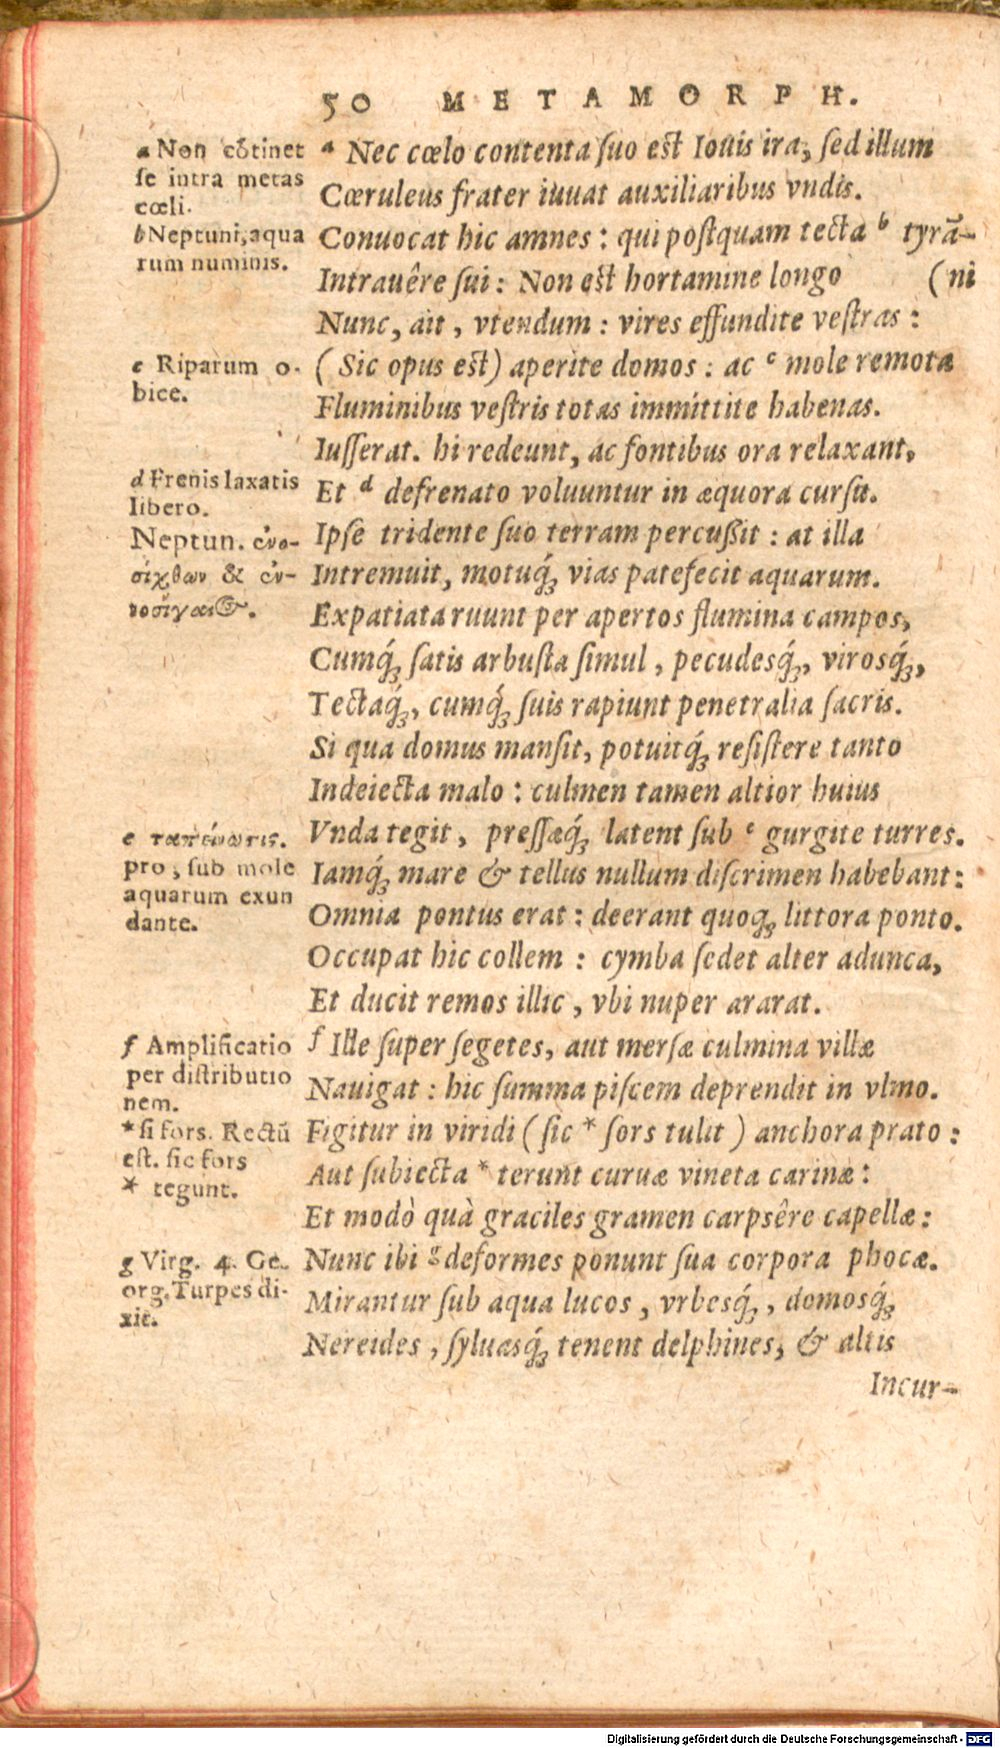 50 METAMORPH.
a Non cōtinet
se intra metas
cœli.
b Neptuni, aqua
rum numinis.
c Riparum o-
bice.
d Frenis laxatis
libero.
Neptun. ἐνο-
σίχθων & ἐν-
νοσίγαι@.
e ταπείνωσις.
pro, sub mole
aquarum exun
dante.
f Amplificatio
per distributio
nem.
*si fors. Rectū
est. sic fors
* tegunt.
g Virg. 4. Ge-
org. Turpes di-
xit.
a Nec cœlo contenta ſuo eſt Iouis ira, ſed illum
Cœruleus frater iuuat auxiliaribus vndis.
Conuocat hic amnes : qui poſtquam tecta b tyrā-
Intrauêre ſui : Non eſt hortamine longo (ni
Nunc, ait, vtendum : vires effundite veſtras :
( Sic opus eſt) aperite domos : ac c mole remota
Fluminibus veſtris totas immittite habenas.
Iuſſerat. hi redeunt, ac fontibus ora relaxant,
Et d defrenato voluuntur in æquora curſu.
Ipſe tridente ſuo terram percußit : at illa
Intremuit, motuq́ꝫ vias patefecit aquarum.
Expatiata ruunt per apertos flumina campos,
Cumq́ꝫ ſatis arbuſta ſimul, pecudesq́ꝫ, virosq́ꝫ,
Tectaq́ꝫ, cumq́ꝫ ſuis rapiunt penetralia ſacris.
Si qua domus manſit, potuitq́ꝫ reſiſtere tanto
Indeiecta malo : culmen tamen altior huius
Vnda tegit, preſſaq́ꝫ latent ſub e gurgite turres.
Iamq́ꝫ mare & tellus nullum diſcrimen habebant :
Omnia pontus erat : deerant quoqꝫ littora ponto.
Occupat hic collem : cymba ſedet alter adunca,
Et ducit remos illic, vbi nuper ararat.
f Ille ſuper ſegetes, aut merſæ culmina villæ
Nauigat : hic ſumma piſcem deprendit in vlmo.
Figitur in viridi ( ſic * ſors tulit ) anchora prato :
Aut ſubiecta * terunt curuæ vineta carinæ :
Et modò quà graciles gramen carpsêre capellæ :
Nunc ibi g deformes ponunt ſua corpora phocæ.
Mirantur ſub aqua lucos, vrbesq́ꝫ, domosq́ꝫ
Nereides, ſyluasq́ꝫ tenent delphines, & altis
Incur-
Digitalisierung gefördert durch die Deutsche Forschungsgemeinschaft - DFG